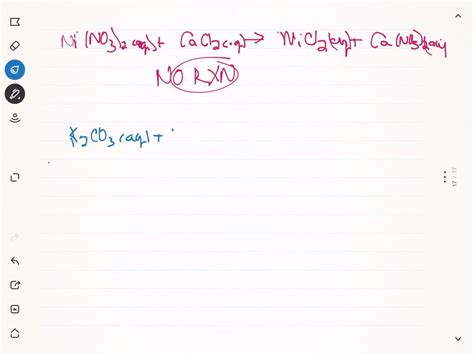 Ni(NO3)2(aq) + CaCl2(aq) → NiCl2(aq) + Ca(NO3)2(aq)
NO RXN
K2CO3(aq) +
17 / 17